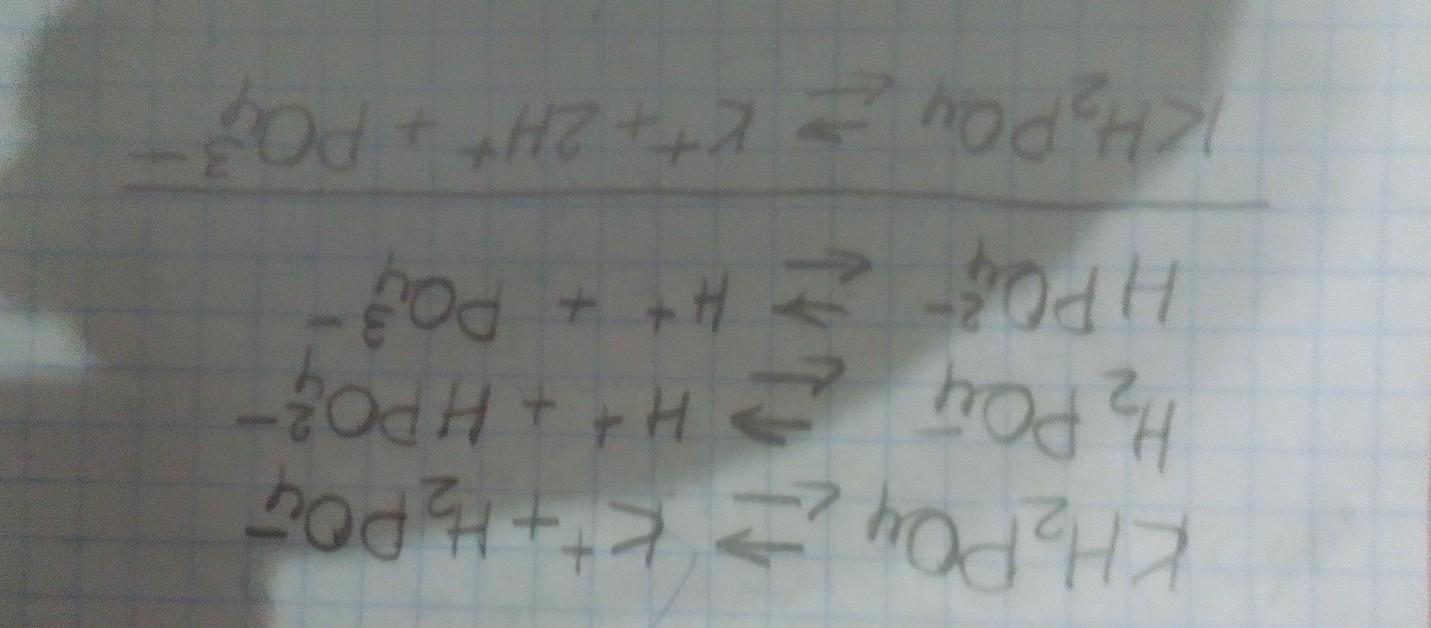 KH₂PO₄ ⇄ K⁺ + H₂PO₄⁻
H₂PO₄⁻ ⇄ H⁺ + HPO₄²⁻
HPO₄²⁻ ⇄ H⁺ + PO₄³⁻
KH₂PO₄ ⇄ K⁺ + 2H⁺ + PO₄³⁻